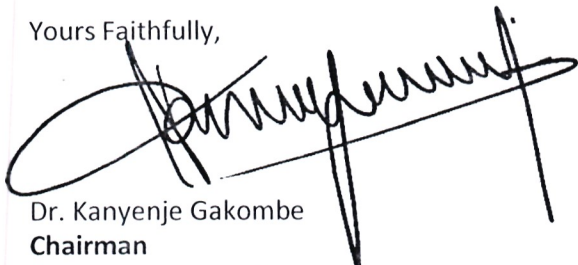 Yours Faithfully,
Dr. Kanyenje Gakombe
Chairman